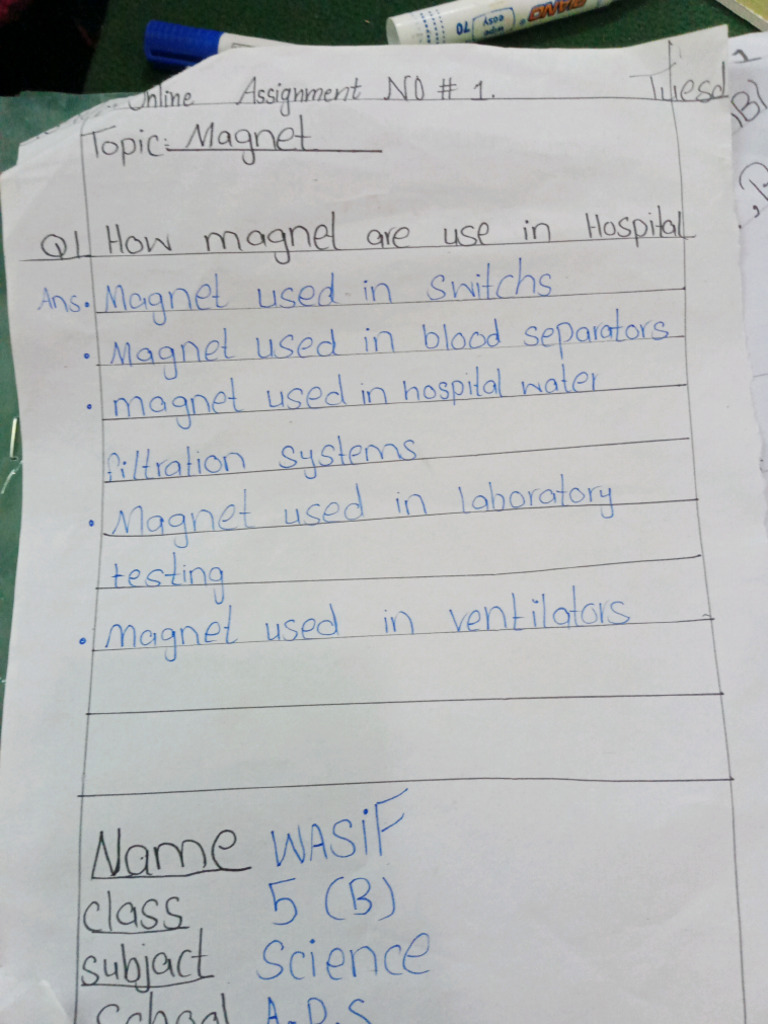 easy wipe
70
Online Assignment NO # 1.
Tuesd
Topic: Magnet
1
(B)
Q1 How magnet are use in Hospital
Ans. Magnet used in switchs
• Magnet used in blood separators
• magnet used in hospital water
filtration systems
• Magnet used in laboratory
testing
• Magnet used in ventilators
Name WASiF
class 5 (B)
subjact Science
School A.P.S